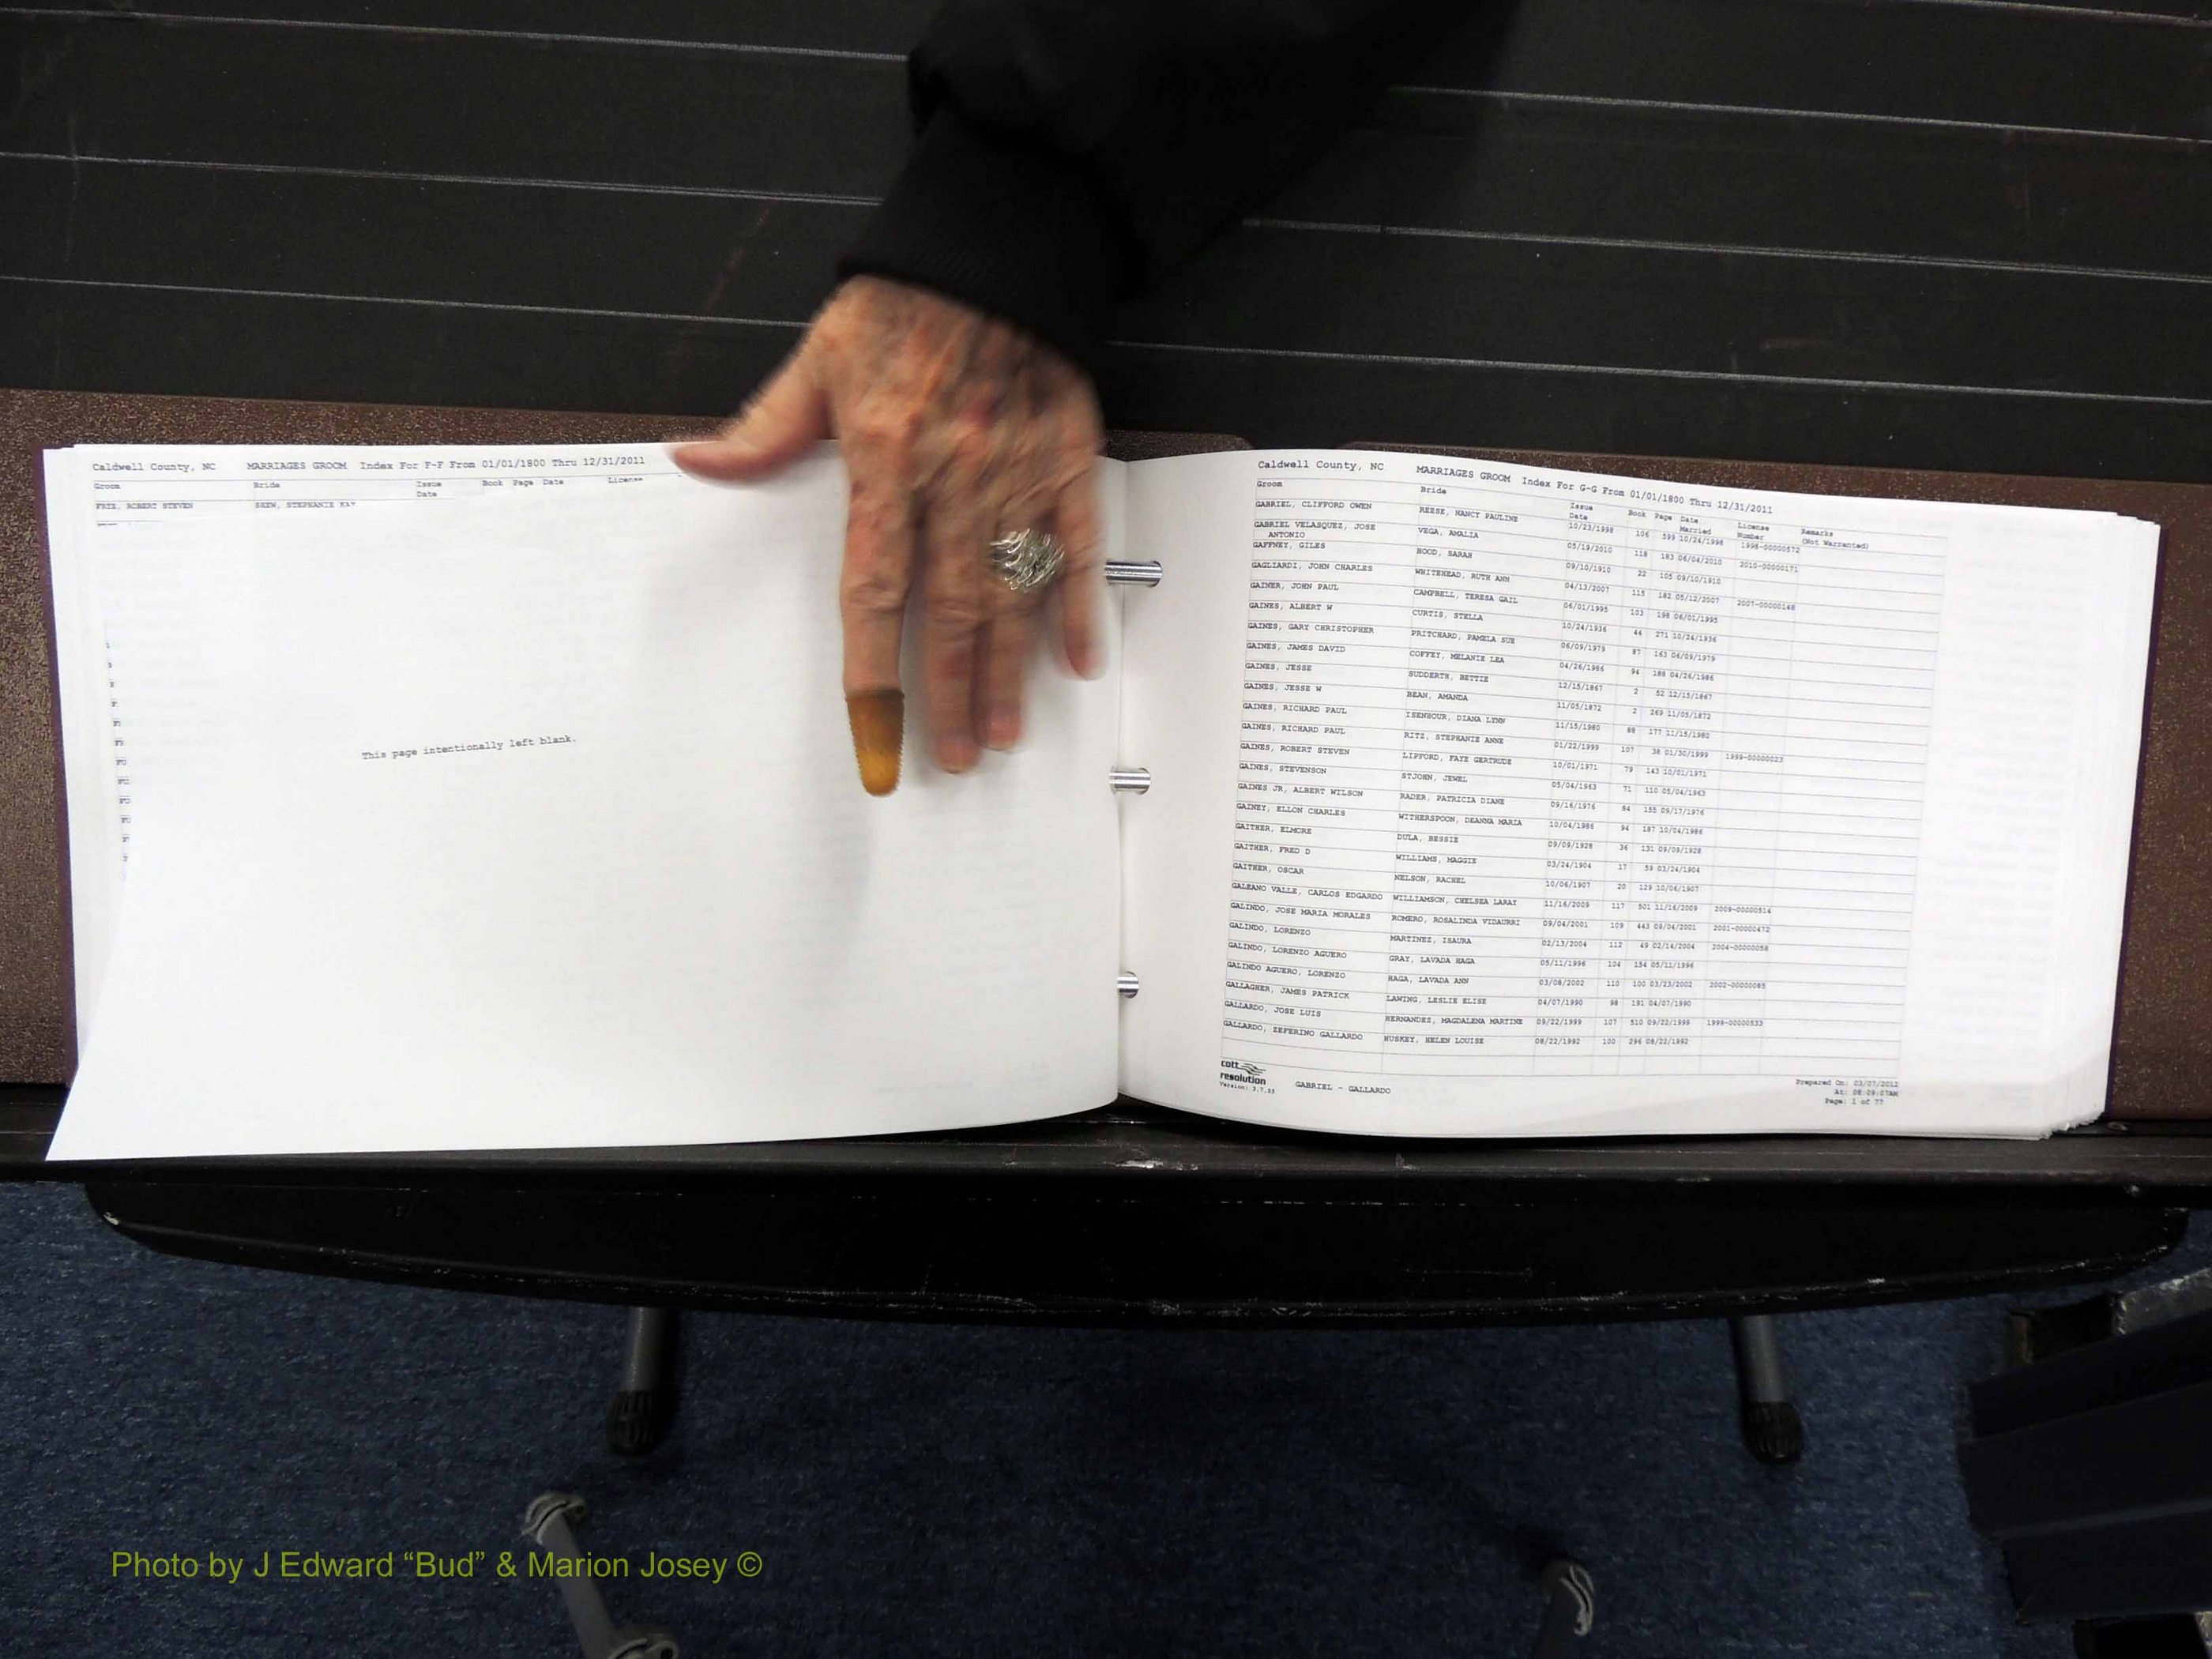 Caldwell County, NC MARRIAGES GROOM Index For F-F From 01/01/1800 Thru 12/31/2011
Groom Bride Issue Book Page Date License
Date
FRYE, ROBERT STEVEN STEPHANIE KAY
This page intentionally left blank.
Caldwell County, NC MARRIAGES GROOM Index For G-G From 01/01/1800 Thru 12/31/2011
Groom Bride Issue Book Page Date License Remarks
Date Married Number (Not Warranted)
GABRIEL, CLIFFORD OWEN REESE, NANCY PAULINE 10/23/1998 106 599 10/24/1998 1998-00000572
GABRIEL VELASQUEZ, JOSE VEGA, AMALIA 05/19/2010 118 183 06/04/2010 2010-00000171
ANTONIO
GAFFNEY, GILES HOOD, SARAH 09/10/1910 22 105 09/10/1910
GAGLIARDI, JOHN CHARLES WHITEHEAD, RUTH ANN 04/13/2007 115 182 05/12/2007 2007-00000148
GAINER, JOHN PAUL CAMPBELL, TERESA GAIL 06/01/1995 103 198 06/01/1995
GAINES, ALBERT W CURTIS, STELLA 10/24/1936 44 271 10/24/1936
GAINES, GARY CHRISTOPHER PRITCHARD, PAMELA SUE 06/09/1979 87 163 06/09/1979
GAINES, JAMES DAVID COFFEY, MELANIE LEA 04/26/1986 94 188 04/26/1986
GAINES, JESSE SUDDERTH, BETTIE 12/15/1867 2 52 12/15/1867
GAINES, JESSE W BEAN, AMANDA 11/05/1872 2 269 11/05/1872
GAINES, RICHARD PAUL ISENHOUR, DIANA LYNN 11/15/1980 88 177 11/15/1980
GAINES, RICHARD PAUL RITZ, STEPHANIE ANNE 01/22/1999 107 38 01/30/1999 1999-00000023
GAINES, ROBERT STEVEN LIPFORD, FAYE GERTRUDE 10/01/1971 79 143 10/01/1971
GAINES, STEVENSON STJOHN, JEWEL 05/04/1963 71 110 05/04/1963
GAINES JR, ALBERT WILSON RADER, PATRICIA DIANE 09/16/1976 84 155 09/17/1976
GAINEY, ELLON CHARLES WITHERSPOON, DEANNA MARIA 10/04/1986 94 187 10/04/1986
GAITHER, ELMORE DULA, BESSIE 09/09/1928 36 131 09/09/1928
GAITHER, FRED D WILLIAMS, MAGGIE 03/24/1904 17 59 03/24/1904
GAITHER, OSCAR NELSON, RACHEL 10/06/1907 20 129 10/06/1907
GALEANO VALLE, CARLOS EDGARDO WILLIAMSON, CHELSEA LARAY 11/16/2009 117 501 11/16/2009 2009-00000514
GALINDO, JOSE MARIA MORALES ROMERO, ROSALINDA VIDAURRI 09/04/2001 109 443 09/04/2001 2001-00000472
GALINDO, LORENZO MARTINEZ, ISAURA 02/13/2004 112 49 02/14/2004 2004-00000058
GALINDO, LORENZO AGUERO GRAY, LAVADA HAGA 05/11/1996 104 154 05/11/1996
GALINDO AGUERO, LORENZO HAGA, LAVADA ANN 03/08/2002 110 100 03/23/2002 2002-00000085
GALLAGHER, JAMES PATRICK LAWING, LESLIE ELISE 04/07/1990 98 191 04/07/1990
GALLARDO, JOSE LUIS HERNANDEZ, MAGDALENA MARTINE 09/22/1999 107 510 09/22/1999 1999-00000533
GALLARDO, ZEFERINO GALLARDO HUSKEY, HELEN LOUISE 08/22/1992 100 296 08/22/1992
cott
resolution
Version: 3.7.55
GABRIEL - GALLARDO
Prepared On: 03/07/2012
At: 08:09:07AM
Page: 1 of 77
Photo by J Edward “Bud” & Marion Josey ©